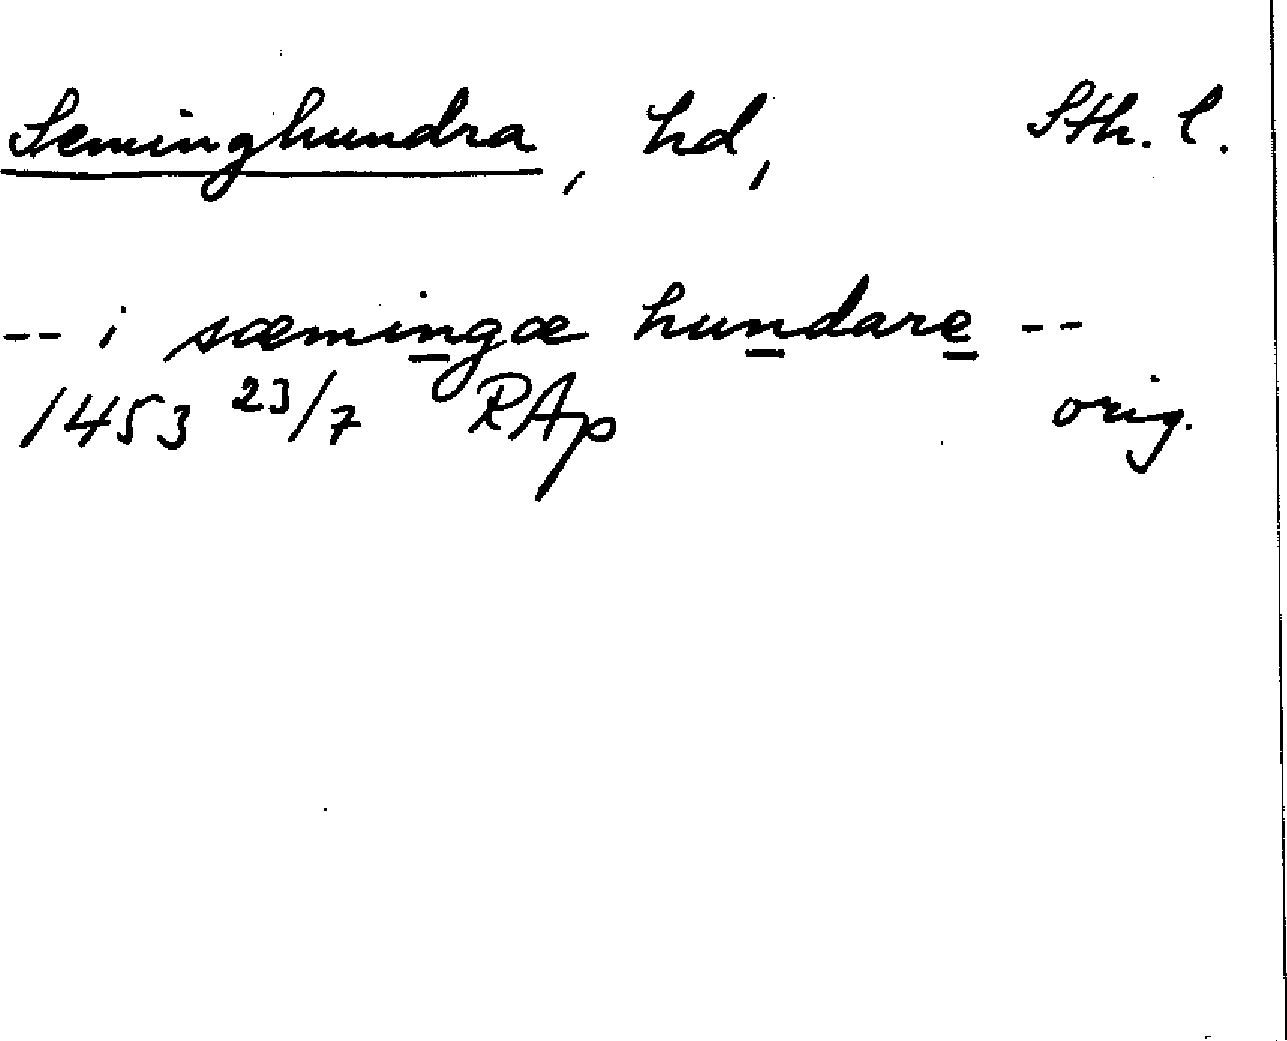 Seminghundra, hd, Sth. l.
-- i sæmingæ hundare --
1453 23/7 RAp orig.